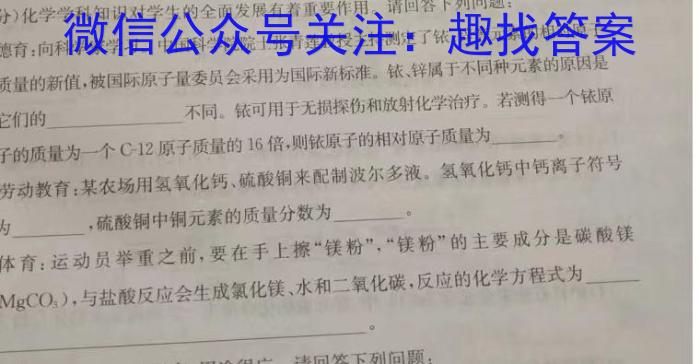 分)化学学科知识对学生的全面发展有着重要作用。请回答下列问题:
微信公众号关注:趣找答案
德育:向科
质量的新值,被国际原子量委员会采用为国际新标准。铱、锌属于不同种元素的原因是
它们的________不同。铱可用于无损探伤和放射化学治疗。若测得一个铱原
子的质量为一个 C-12 原子质量的 16 倍,则铱原子的相对原子质量为________。
劳动教育:某农场用氢氧化钙、硫酸铜来配制波尔多液。氢氧化钙中钙离子符号
为________,硫酸铜中铜元素的质量分数为________。
体育:运动员举重之前,要在手上擦“镁粉”,“镁粉”的主要成分是碳酸镁
MgCO₃),与盐酸反应会生成氯化镁、水和二氧化碳,反应的化学方程式为________
________。
请回答下列问题: